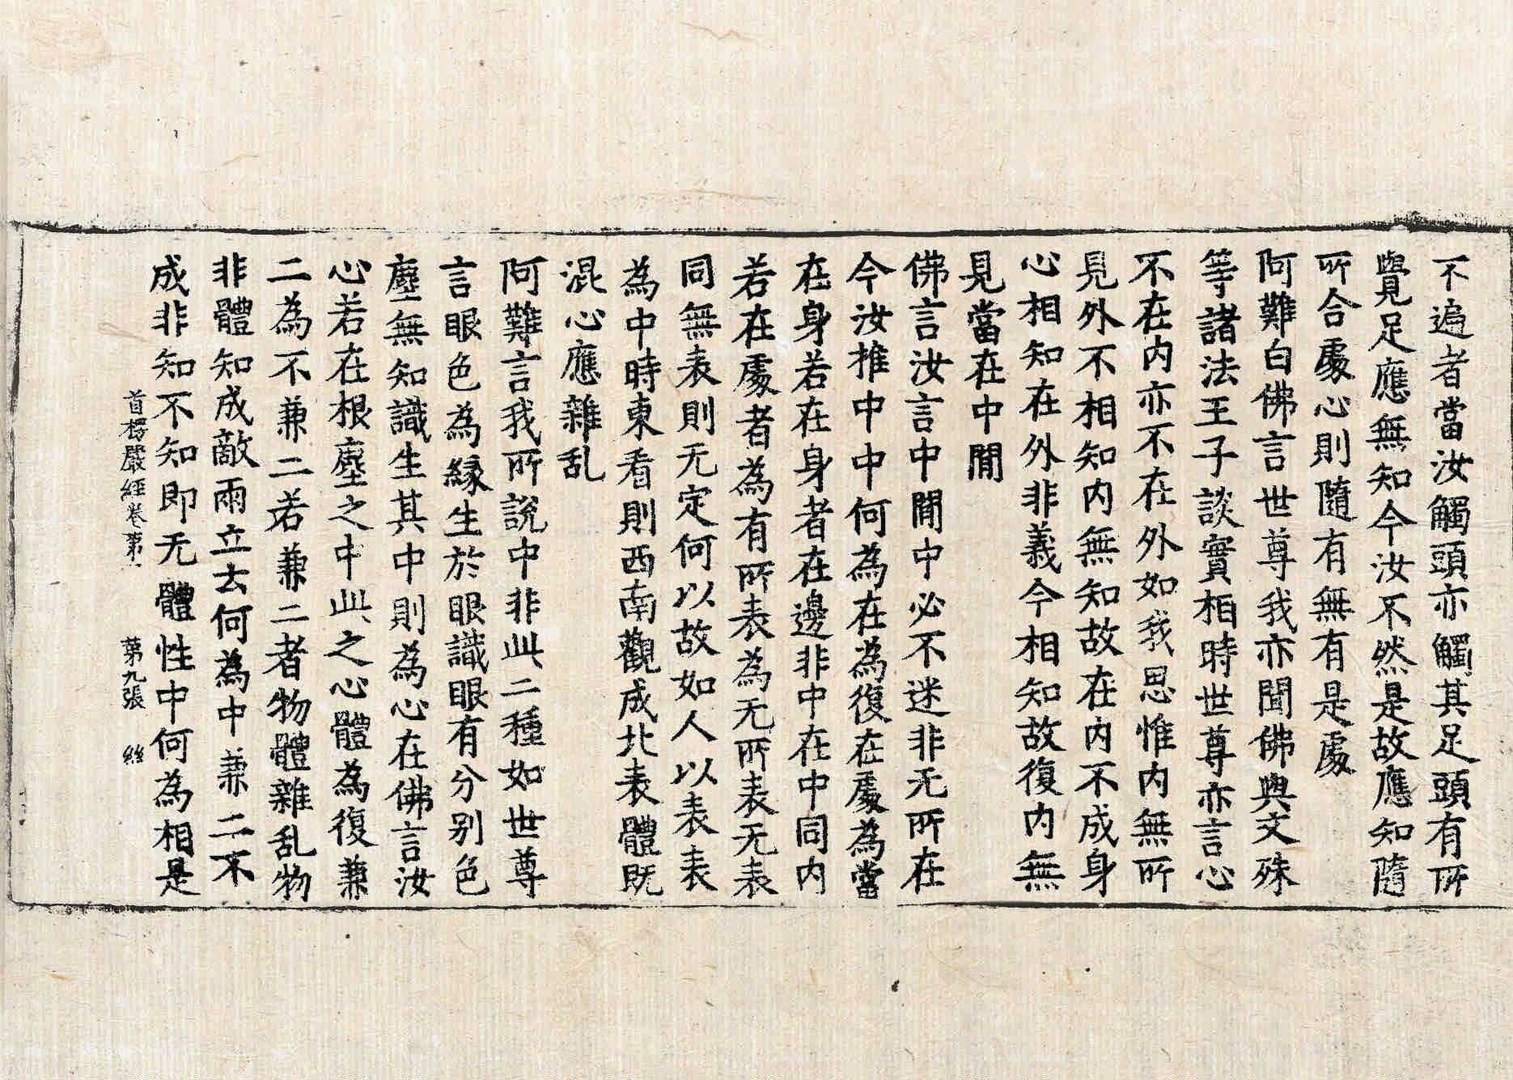 不遍者當汝觸頭亦觸其足頭有所
覺足應無知今汝不然是故應知隨
所合處心則隨有無有是處
阿難白佛言世尊我亦聞佛與文殊
等諸法王子談實相時世尊亦言心
不在内亦不在外如我思惟内無所
見外不相知内無知故在内不成身
心相知在外非義今相知故復内無
見當在中間
佛言汝言中間中必不迷非无所在
今汝推中中何為在為復在處為當
在身若在身者在邊非中在中同内
若在處者為有所表為无所表无表
同無表則无定何以故如人以表表
為中時東看則西南觀成北表體既
混心應雜乱
阿難言我所說中非此二種如世尊
言眼色為緣生於眼識眼有分别色
塵無知識生其中則為心在佛言汝
心若在根塵之中此之心體為復兼
二為不兼二若兼二者物體雜乱物
非體知成敵兩立云何為中兼二不
成非知不知即无體性中何為相是
首楞嚴經卷第一 第九張 絲